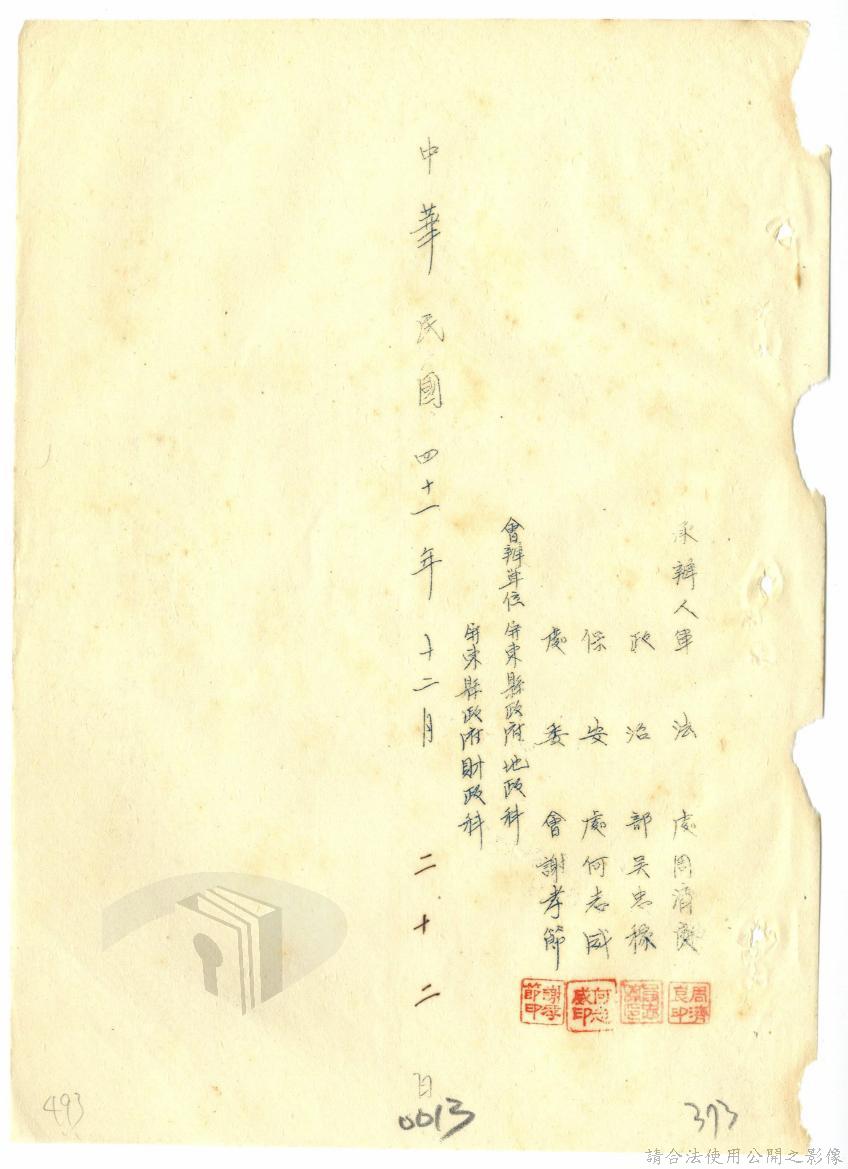 承辦人軍法處周濟良
政治部吳忠穆
保安處何志威
處委會謝孝節
周濟良印
何志威印
謝孝節印
會辦單位屏東縣政府地政科
屏東縣政府財政科
中華民國四十一年十二月二十二日
493
0013
373
請合法使用公開之影像